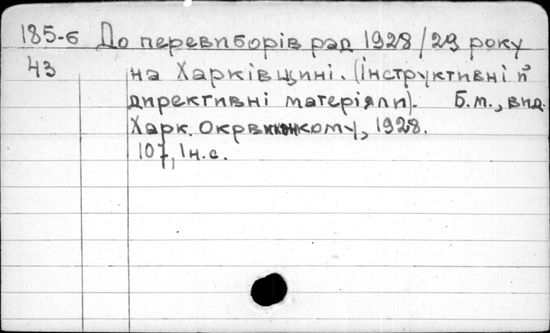 185-б До перевиборів рад 1928/29 року
43 на Харківщині. (Інструктивні й
директивні матеріяли). Б.м., вид.
Харк. Окрвиконкому, 1928.
107, 1н.с.